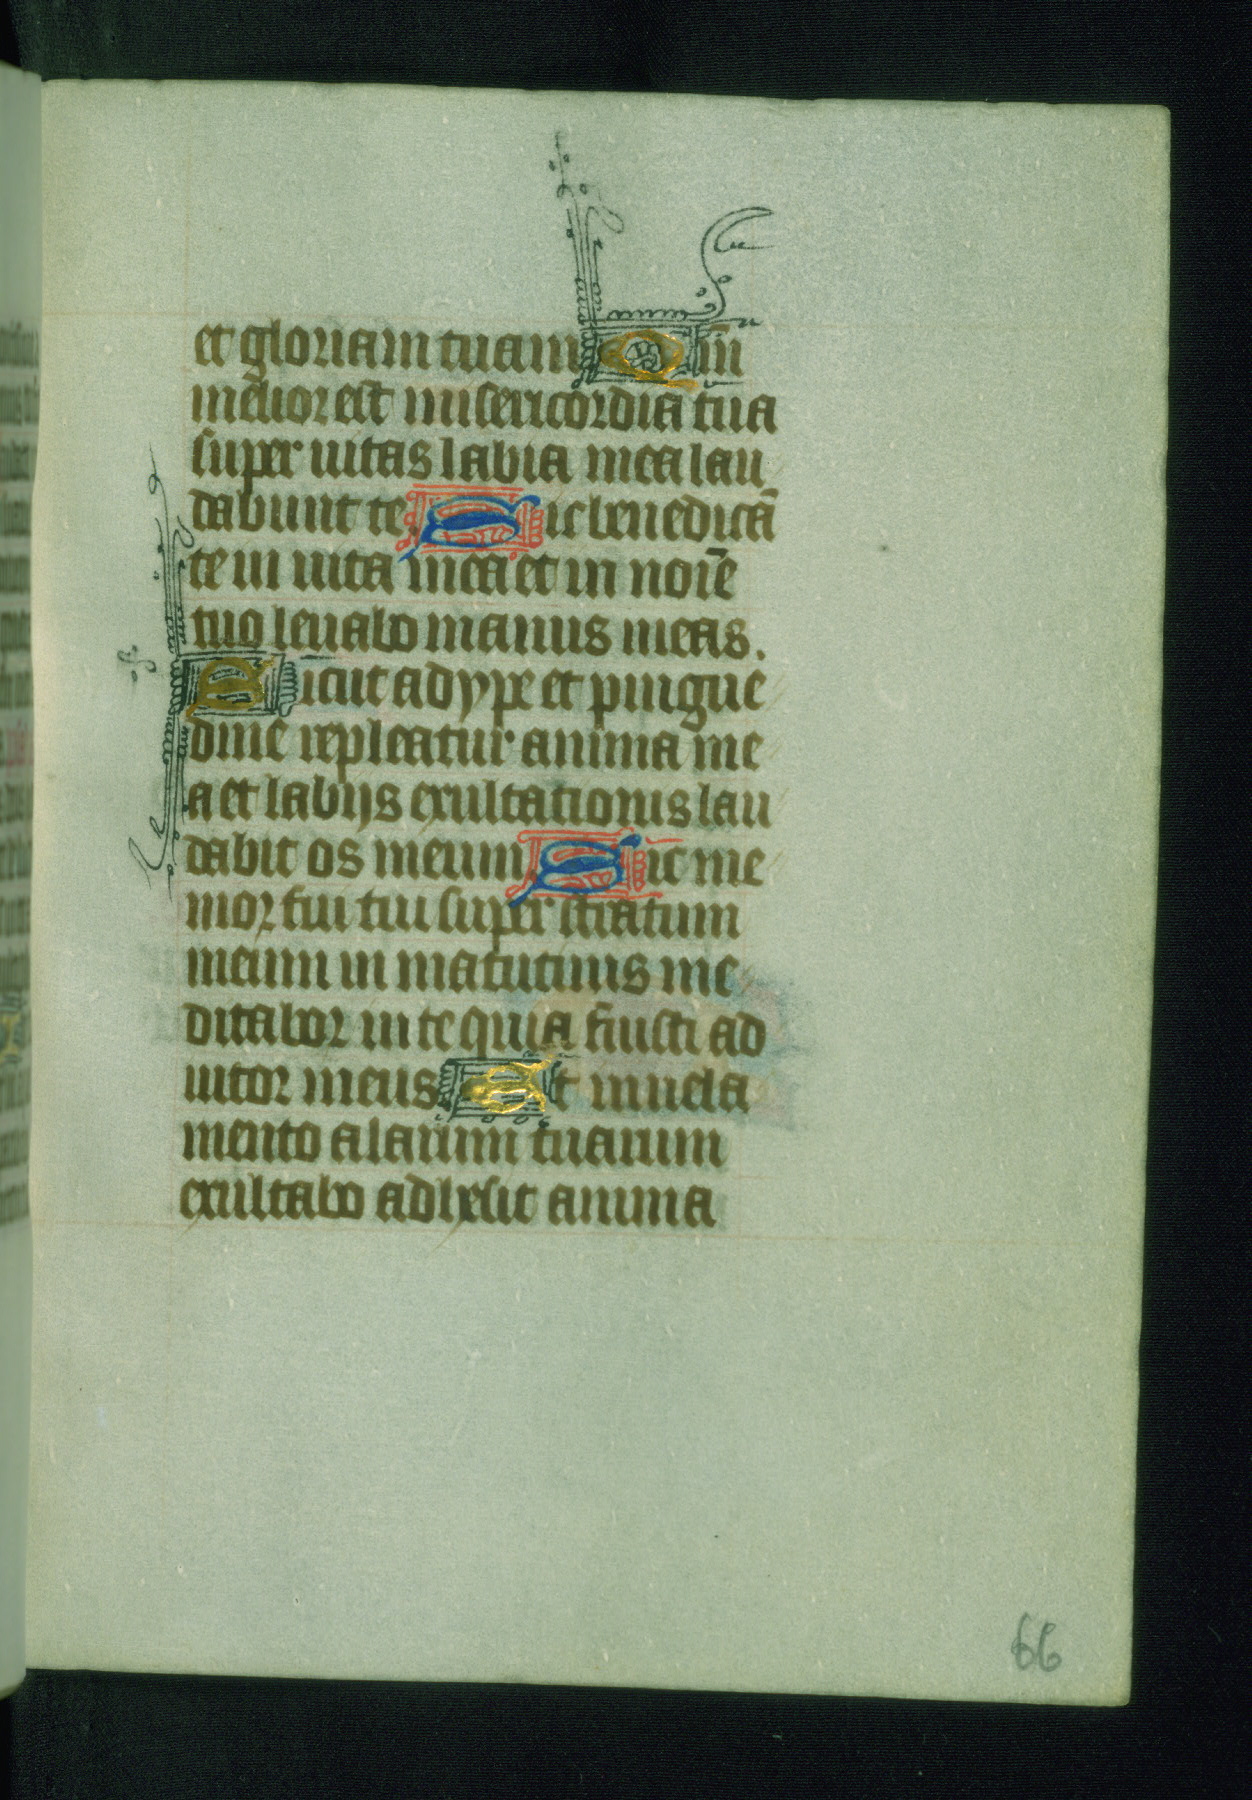 et gloriam tuam Qm̄
melior est misericordia tua
super uitas labia mea lau
dabunt te. Sic benedicā
te in uita mea et in noīe
tuo leuabo manus meas.
Sicut adype et pingue
dine repleatur anima me
a et labijs exultationis lau
dabit os meum. Sic me
mor fui tui super stratum
meum in matutinis me
ditabor in te quia fuisti ad
iutor meus Et in uela
mento alarum tuarum
exultabo adhesit anima
66